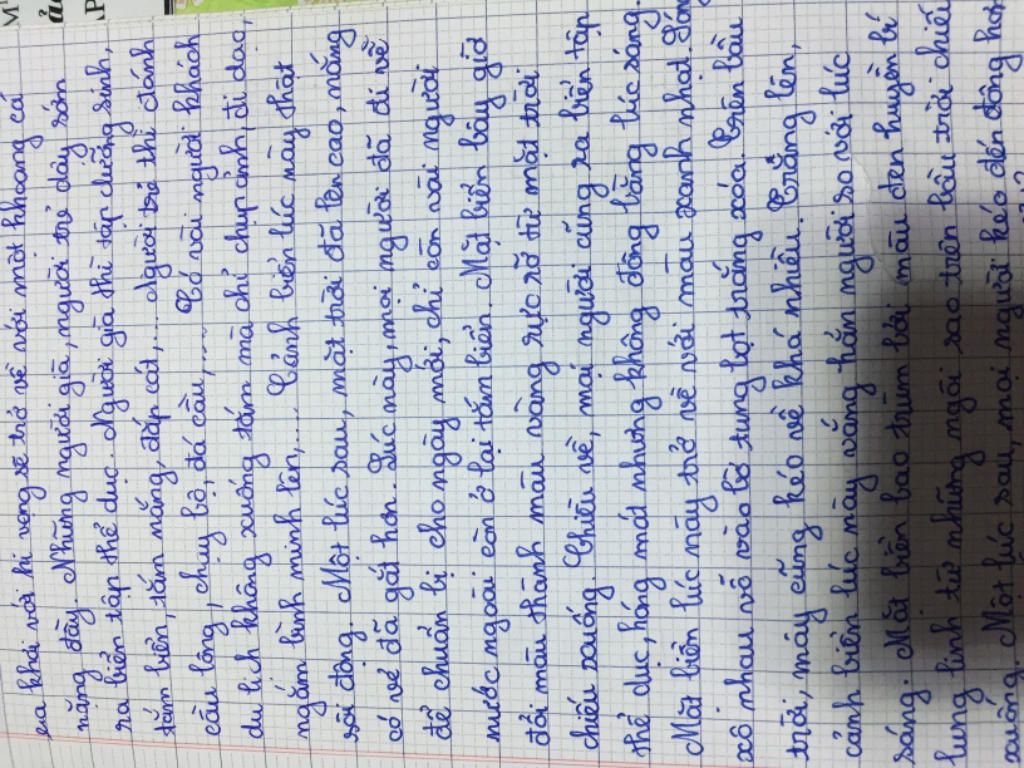 ra khơi với hi vọng sẽ trở về với một khoang cá
nặng đầy. Những người già, người trẻ dậy sớm
ra biển tập thể dục. Người già thì tập dưỡng sinh,
tắm biển, tắm nắng, đắp cát,.... Người trẻ thì đánh
cầu lông, chạy bộ, đá cầu,.... Có vài người khách
du lịch không xuống tắm mà chỉ chụp ảnh, đi dạo,
ngắm bình minh lên,.... Cảnh biển lúc này thật
sôi động. Một lúc sau, mặt trời đã lên cao, nắng
có vẻ đã gắt hơn. Lúc này, mọi người đã đi về
để chuẩn bị cho ngày mới, chỉ còn vài người
nước ngoài còn ở lại tắm biển. Mặt biển bây giờ
đổi màu thành màu vàng rực rỡ từ mặt trời
chiếu xuống. Chiều về, mọi người cũng ra biển tập
thể dục, hóng mát nhưng không đông bằng lúc sáng.
Mặt biển lúc này trở về với màu xanh nhạt. Sóng
xô nhau vỗ vào bờ tung bọt trắng xóa. Trên bầu
trời, mây cũng kéo về khá nhiều. Trăng lên,
cảnh biển lúc này vắng hẳn người so với lúc
sáng. Mặt biển bao trùm bởi màu đen huyền bí
lung linh từ những ngôi sao trên bầu trời chiếu
xuống. Một lúc sau, mọi người kéo đến đông hơn